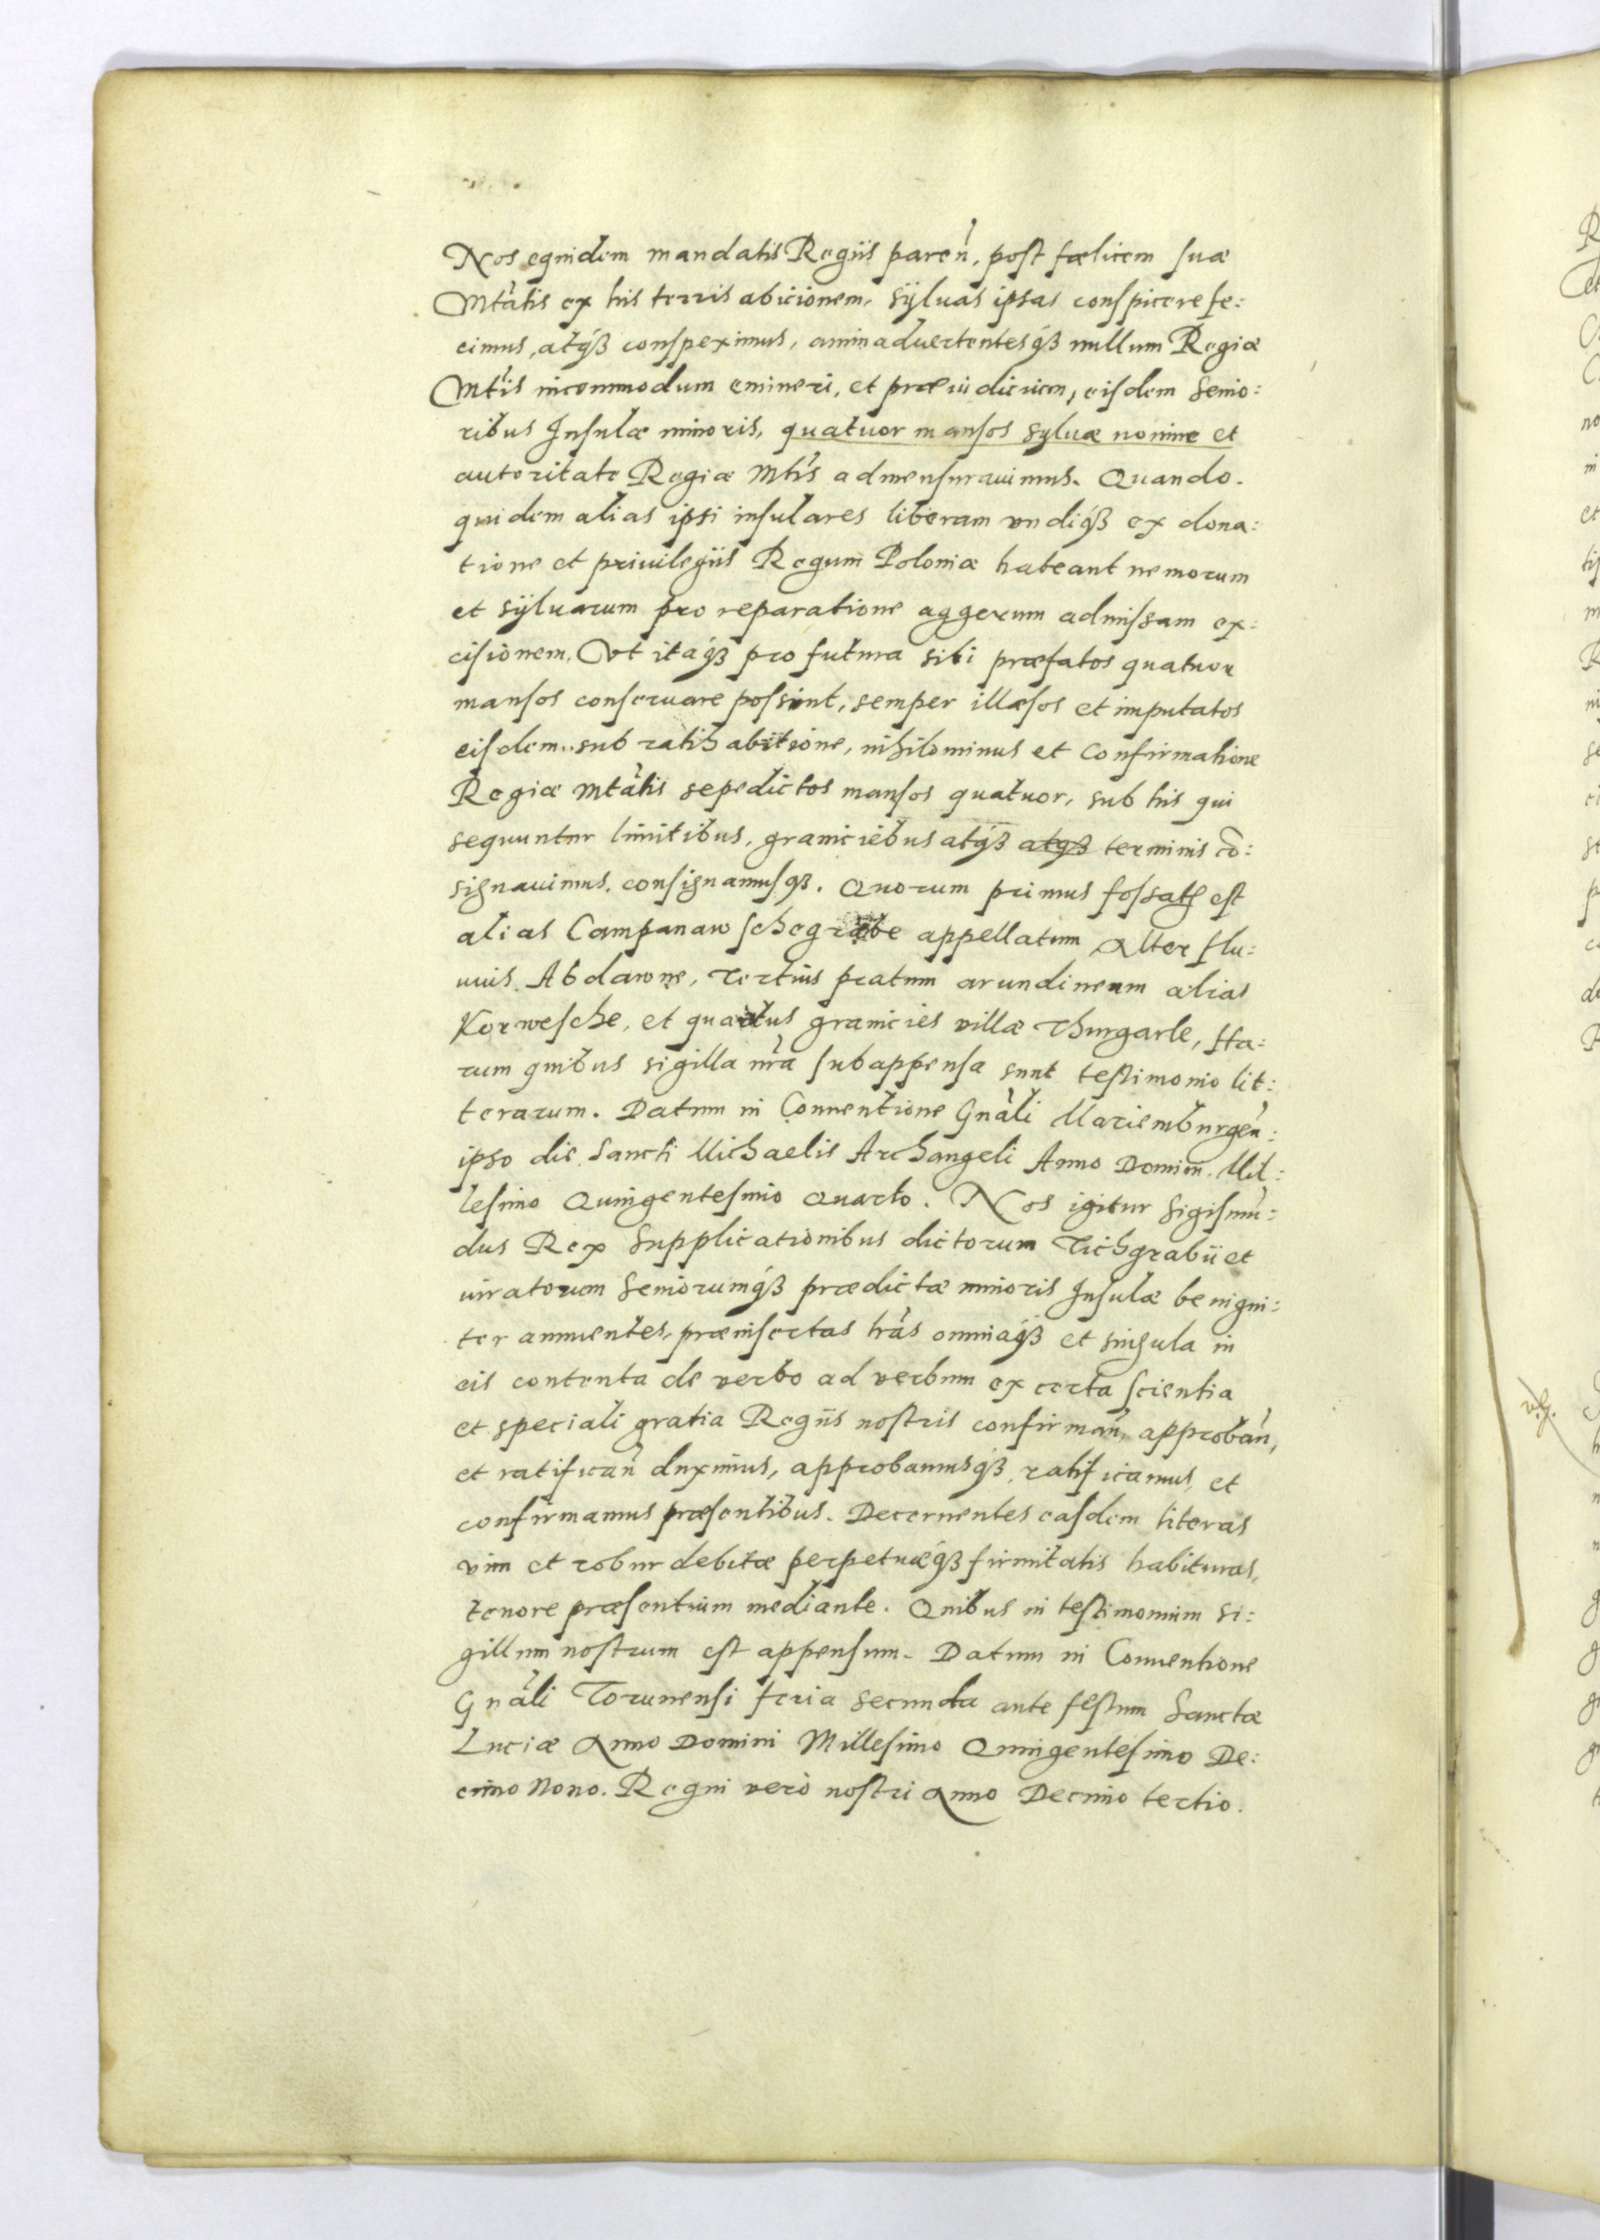 Nos equidem mandatis Regiis paren̄, post fælicem suæ
Mtātis ex his terris abicionem, sÿluas ipsas conspicere fe:
cimus, atq́ꝫ conspeximus, animaduertentesq́ꝫ nullum Regiæ
Mtīs incommodum emineri, et præiudicium, eisdem senio:
ribus Insulæ minoris, quatuor mansos syluæ nomine et
autoritate Regiæ Mtīs admensurauimus. Quando.
quidem alias ipsi insulares liberam vndiq́ꝫ ex dona:
tione et priuilegiis Regum Poloniæ habeant nemorum
et sÿluarum pro reparatione aggerum admissam ex:
cisionem. Vt itaq́ꝫ pro futura sibi præfatos quatuor
mansos conseruare possint, semper illæsos et imputatos
eisdem sub ratihabitione, nihilominus et confirmatione
Regiæ Mtātis sepedictos mansos quatuor, sub his qui
sequuntur limitibus, graniciebus atq́ꝫ atqꝫ terminis cō:
signauimus, consignamusqꝫ. Quorum primus fossatū est
alias Campanaw schegrabe appellatum Alter flu:
uius Abdawne, Tertius pratum arundineum alias
Korwesche, et quartus granicies villæ Thurgarle, Ha:
rum quibus sigilla nr̄a subappensa sunt testimonio lit:
terarum. Datum in Conuentione Gnāli Mariemburgen̄:
ipso die Sancti Michaelis Archangeli Anno Domini. Mil:
lesimo Quingentesimo Quarto. Nos igitur Sigismū:
dus Rex Supplicationibus dictorum Tichgrabii et
iuratorum Seniorumq́ꝫ prædictæ minoris Insulæ benigni:
ter annuentes, præinsertas lrās omniaq́ꝫ et singula in
eis contenta de verbo ad verbum ex certa scientia
et speciali gratia Regiis nostris confirman̄, approban̄,
et ratifican̄ duximus, approbamusq́ꝫ ratificamus, et
confirmamus præsentibus. Decernentes easdem literas
vim et robur debitæ perpetuæq́ꝫ firmitatis habituras,
tenore præsentium mediante. Quibus in testimonium si:
gillum nostrum est appensum. Datum in Conuentione
Gnāli Torunensi feria secunda ante festum Sanctæ
Luciæ Anno Domini Millesimo Quingentesimo De:
cimo Nono. Regni verò nostri Anno Decimo tertio.